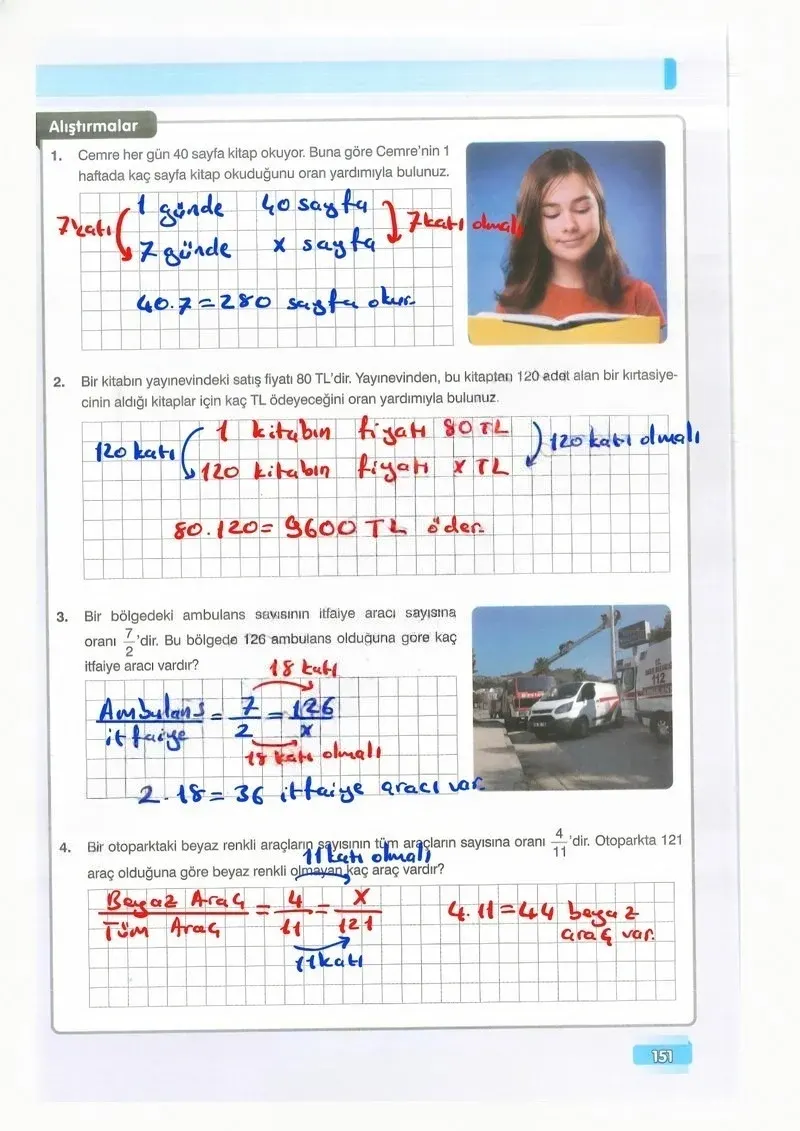 Alıştırmalar
1. Cemre her gün 40 sayfa kitap okuyor. Buna göre Cemre'nin 1
haftada kaç sayfa kitap okuduğunu oran yardımıyla bulunuz.
1 günde 40 sayfa
7 katı 7 katı olmalı
7 günde x sayfa
40.7=280 sayfa okur.
2. Bir kitabın yayınevindeki satış fiyatı 80 TL'dir. Yayınevinden, bu kitaptan 120 adet alan bir kırtasiye-
cinin aldığı kitaplar için kaç TL ödeyeceğini oran yardımıyla bulunuz.
1 kitabın fiyatı 80 TL
120 katı 120 katı olmalı
120 kitabın fiyatı x TL
80.120= 9600 TL öder.
3. Bir bölgedeki ambulans sayısının itfaiye aracı sayısına
oranı 7/2'dir. Bu bölgede 126 ambulans olduğuna göre kaç
itfaiye aracı vardır?
18 katı
Ambulans/itfaiye = 7/2 = 126/x
18 katı olmalı
2.18=36 itfaiye aracı var.
112
4. Bir otoparktaki beyaz renkli araçların sayısının tüm araçların sayısına oranı 4/11'dir. Otoparkta 121
11 katı olmalı
araç olduğuna göre beyaz renkli olmayan kaç araç vardır?
Beyaz Araç/Tüm Araç = 4/11 = x/121
4.11=44 beyaz
araç var.
11 katı
151